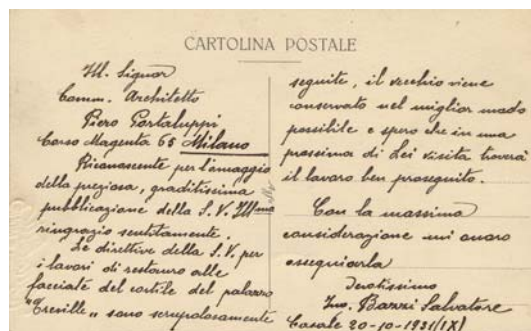 CARTOLINA POSTALE
Ill. Signor
Comm. Architetto
Piero Portaluppi
Corso Magenta 65 Milano
Riconoscente per l'omaggio
della preziosa, graditissima
pubblicazione della S. V. Ill.ma
ringrazio sentitamente.
Le direttive della S. V. per
i lavori di restauro alle
facciate del cortile del palazzo
"Treville" sono scrupolosamente
seguite, il vecchio viene
conservato nel miglior modo
possibile e spero che in una
prossima di Lei visita troverà
il lavoro ben proseguito.
Con la massima
considerazione mi onoro
ossequiarla
Devotissimo
Ing. Bazzi Salvatore
Casale 20-10-1931(IX)